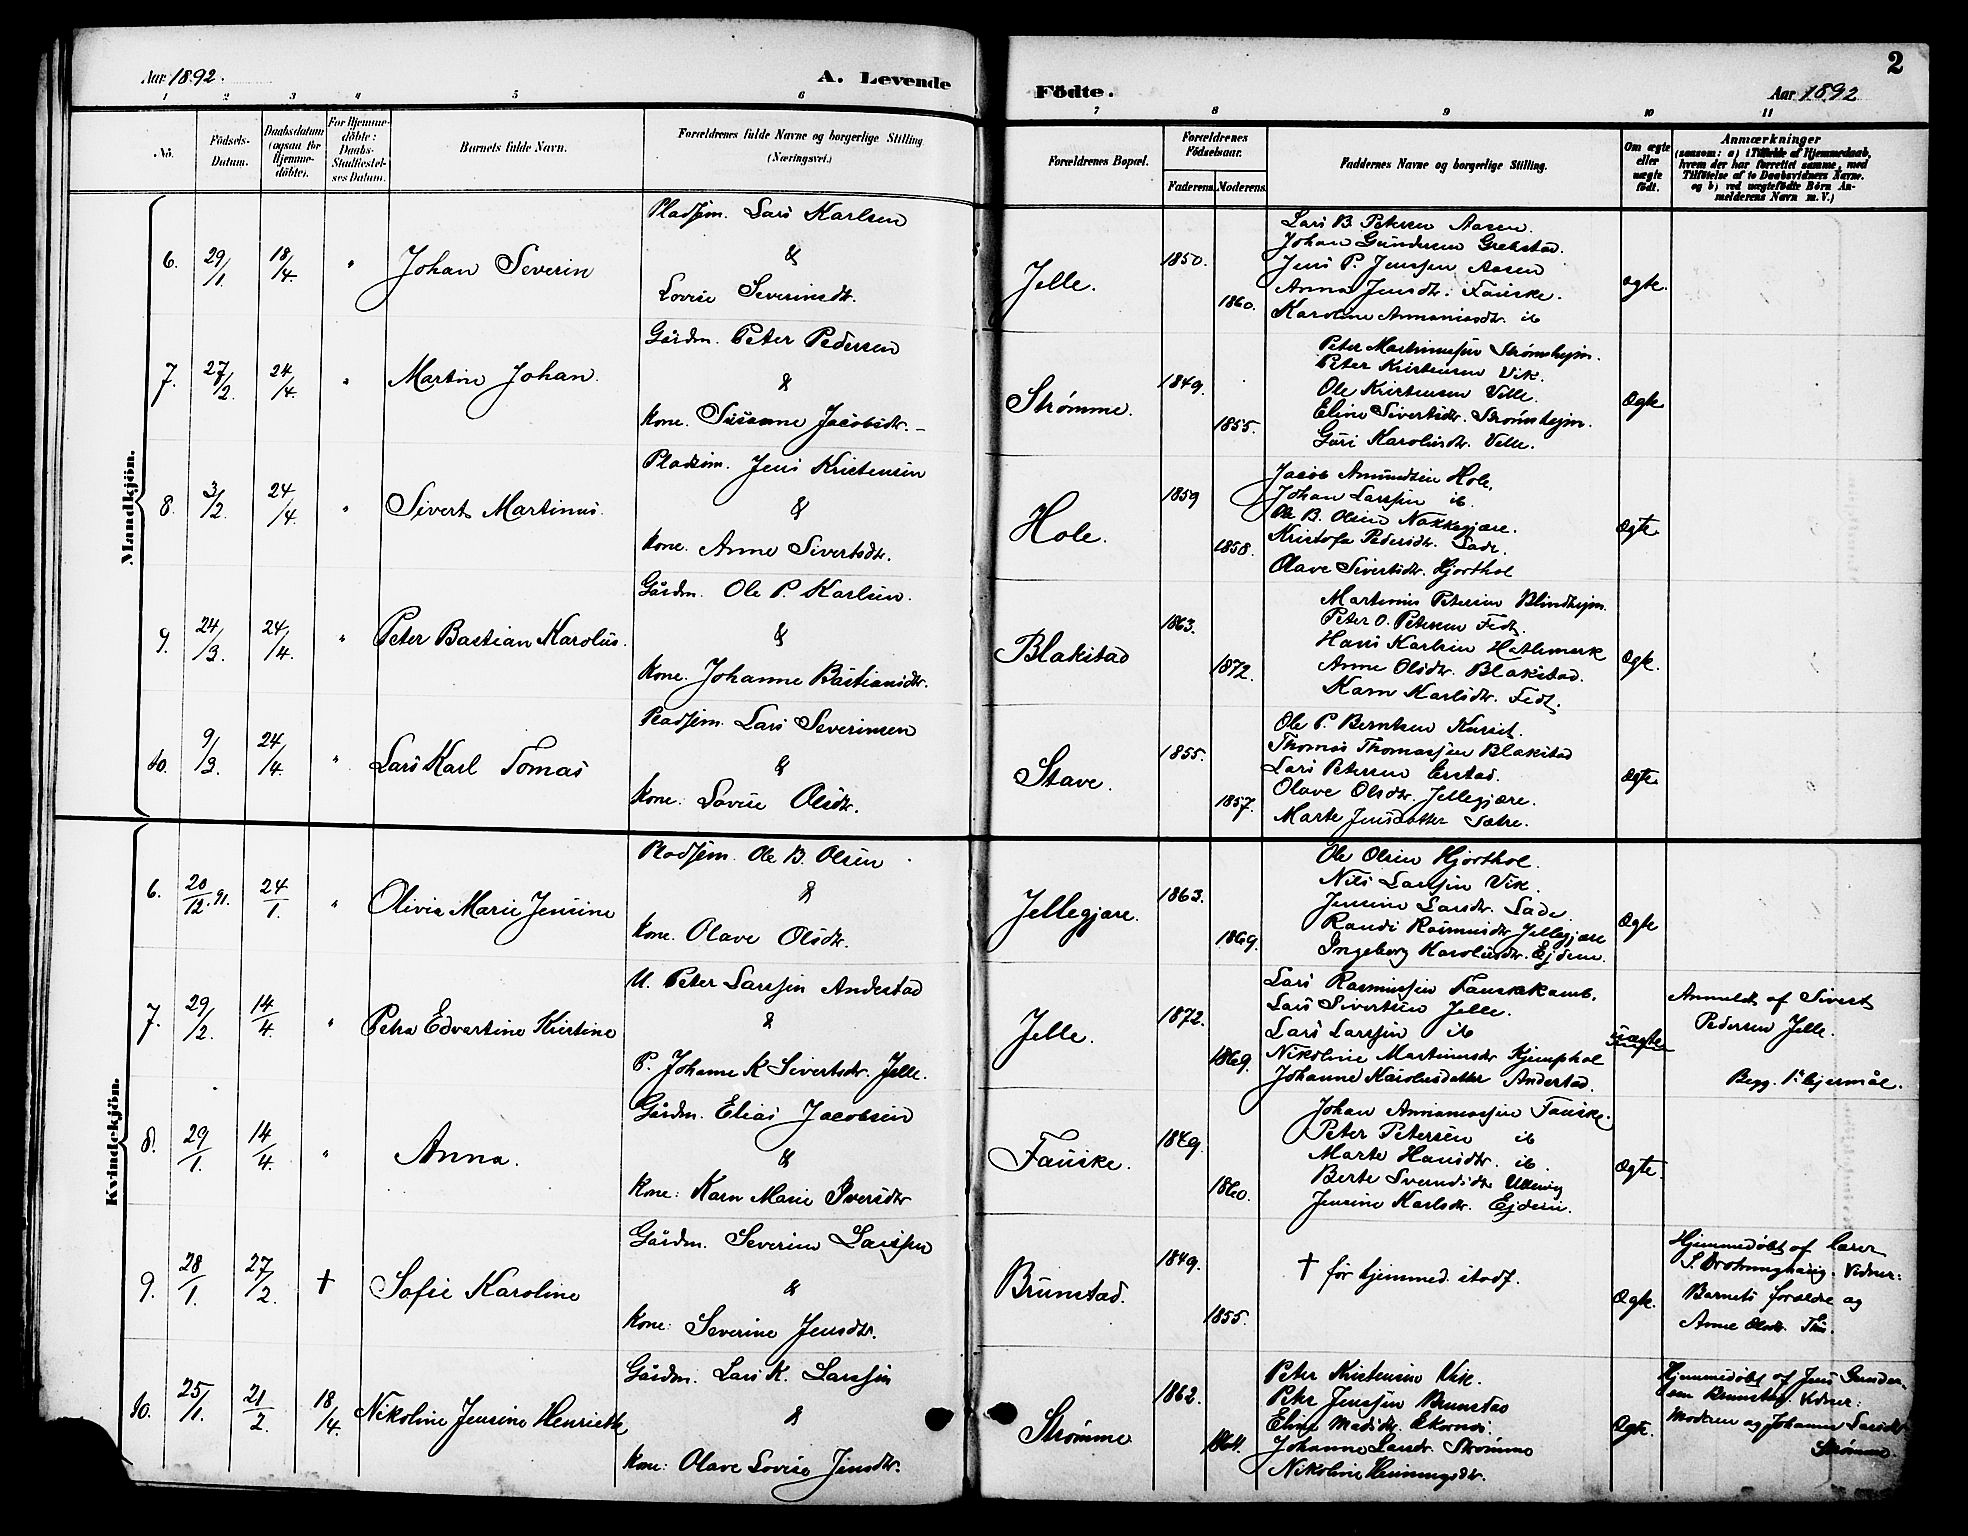 Aar 1892.
A. Levende
Födte.
Aar 1892
2
1 2 3 4 5 6 7 8 9 10 11
No.
Födsels-Datum.
Daabsdatum (ogsaa for Hjemmedöbte).
For Hjemmedöbte: Daabs-Stadfæstelses Datum.
Barnets fulde Navn.
Forældrenes fulde Navne og borgerlige Stilling (Næringsvei.)
Forældrenes Bopæl.
Forældrenes Födselsaar.
Faderens. Moderens.
Faddernes Navne og borgerlige Stilling.
Om ægte eller uægte födt.
Anmærkninger
(saasom: a) i Tilfælde af Hjemmedaab,
hvem der har forrettet samme, med
Tilföielse af to Daabsvidners Navne.
og b) ved uægtefödte Börn Anmelderens Navn m. V.)
Mandkjön.
6. 29/1 18/4 "
Johan Severin
Pladsm. Lars Karlsen
&
Lovise Severinsdtr.
Jelle.
1850.
1860.
Lars B. Petersen Aasen.
Johan Gundersen Grebstad.
Jens P. Jenssen Aasen
Anna Jensdtr. Fauske.
Karoline Ananiasdtr. ib
ægte.
7. 27/2 24/4 "
Martin Johan.
Gårdm. Peter Pedersen
&
kone. Susanne Jacobsdtr.
Strømme.
1849.
1855.
Peter Martinussen Strømshejm.
Peter Kristensen Vik.
Ole Kristensen Velle.
Eline Sivertsdtr. Strømshejm.
Guri Karolusdtr. Velle.
Ægte
8. 3/2 24/4 "
Sivert Martinus.
Pladsm. Jens Kristensen
&
kone. Anne Sivertsdtr.
Hole.
1859
1858.
Jacob Amundsen Hole.
Johan Larssen ib
Ole B. Olsen Nakkegjære.
Kristofa Pedersdtr. Lade.
Olave Sivertsdtr. Hjorthol
Ægte.
9. 24/3. 24/4. "
Peter Bastian Karolus.
Gårdm. Ole P. Karlsen.
&
kone. Johanne Bastiansdtr.
Blakstad
1863.
1872.
Martinus Petersen Blindhejm.
Peter O. Petersen Fedt.
Hans Karlsen Hatlemark
Anne Olsdtr. Blakstad.
Karn Karlsdtr. Fedt.
Ægte.
10. 9/3. 24/4. "
Lars Karl Tomas
Pladsm. Lars Severinsen
&
kone: Lovise Olsdtr.
Stave.
1855.
1857.
Ole P. Berntsen Kurset.
Thomas Thomassen Blakstad
Lars Petersen Erstad.
Olave Olsdtr. Jellegjære.
Marte Jensdatter Sætre.
Ægte
Kvindekjön.
6. 20/12.91. 24/1. "
Olivia Marie Jensine
Pladsm. Ole B. Olsen
&
kone. Olave Olsdtr.
Jellegjære.
1863.
1869.
Ole Olsen Hjorthol.
Nils Larssen Vik.
Jensine Larsdtr. Lade.
Randi Rasmusdtr. Jellegjære
Ingeborg Karolusdtr. Ejdem.
Ægte
7. 29/2. 14/4. "
Petra Edvartine Kristine
U. Peter Larssen Andestad
&
P. Johanne K Sivertsdtr. Jelle.
Jelle.
1872.
1869.
Lars Rasmussen Fauskekamb.
Lars Sivertsen Jelle.
Lars Larssen ib
Nikoline Martinusdtr. Kjemphol
Johanne Karolusdatter Andestad.
uægte
Anmeldt af Sivert
Pedersen Jelle.
Begg. 1ste lejermål.
8. 29/1. 14/4. "
Anna.
Gårdm. Elias Jacobsen
&
kone: Karn Marie Iversdtr
Fauske.
1849.
1860.
Johan Annaniassen Fauske.
Peter Petersen ib
Marte Hansdtr. ib.
Berte Svendsdtr. Utterig
Jensine Karlsdtr. Ejdem.
Ægte.
9. 28/1. 27/2. †
Sofie Karoline
Gårdm. Severin Larssen
&
kone: Severine Jensdtr.
Brunstad.
1849.
1855.
† før hjemmed. stadf.
Ægte.
Hjemmedøbt af lærer
S. Dronninghaug. Vidner:
Barnets forældre og
Anne Olsdtr.
10. 25/1. 21/2 18/4.
Nikoline Jensine Henriette
Gårdm. Lars K. Larssen
&
kone: Olave Lovise Jensdtr.
Strømme
1862.
1864.
Peter Kristensen Vik.
Peter Jenssen Brunstad
Eline Madsdtr. Ekornes.
Johanne Larsdtr. Strømme
Nikoline Henningsdtr.
Ægte.
Hjemmedøbt af Jens Gundersen Brunstad. Vidner:
Moderen og Johanne Larsdtr.
Strømme.